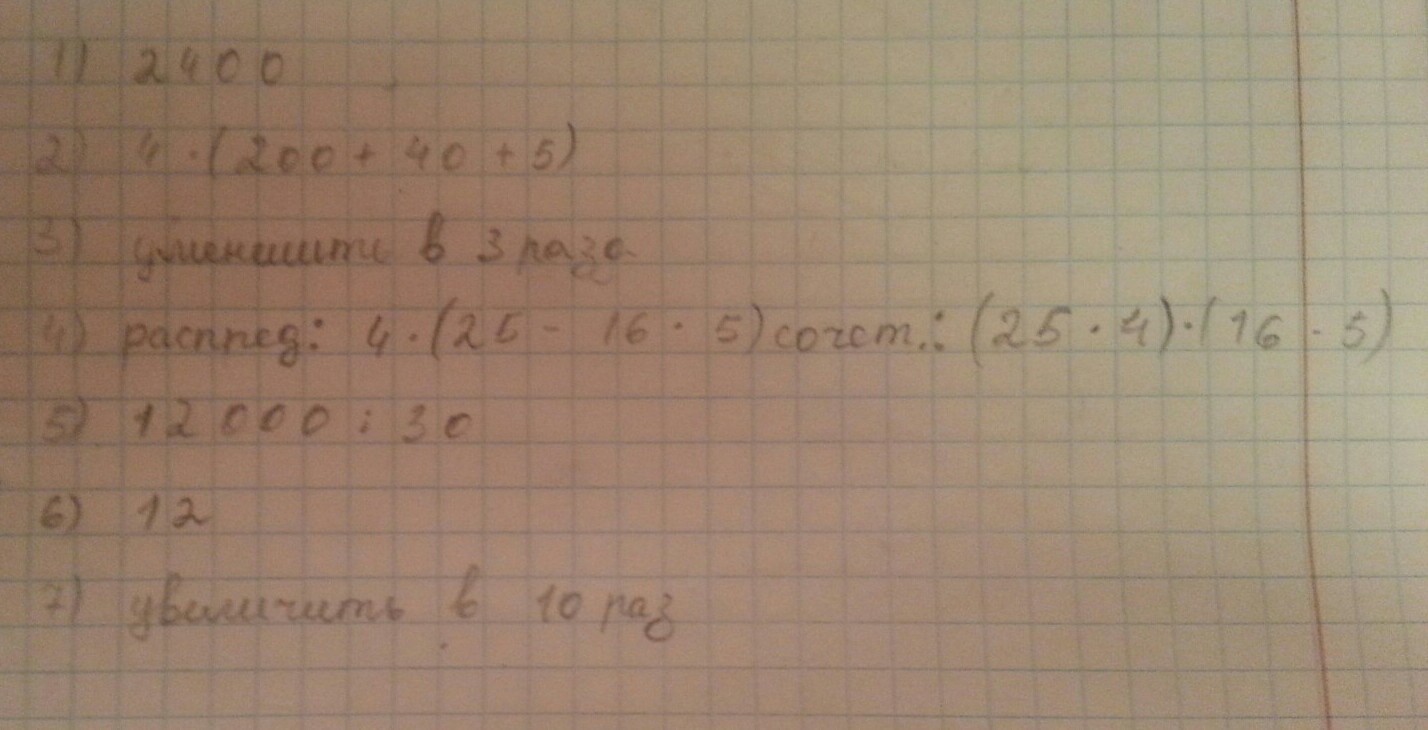 1) 2400
2) 4 · (200 + 40 + 5)
3) уменшить в 3 раза
4) распред: 4 · (25 - 16 · 5) сочет.: (25 · 4) · (16 · 5)
5) 12000 : 30
6) 12
7) увеличить в 10 раз